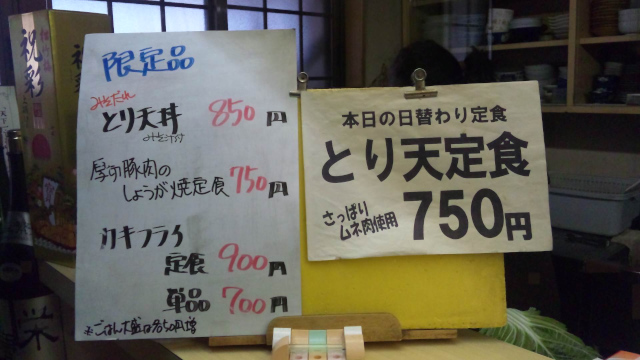 限定品
みそだれ
とり天丼 850円
みそ汁付
厚切豚肉の
しょうが焼定食 750円
カキフライ
定食 900円
単品 700円
※ごはん大盛は各50円増
本日の日替わり定食
とり天定食
さっぱり
ムネ肉使用
750円
祝彩
栄